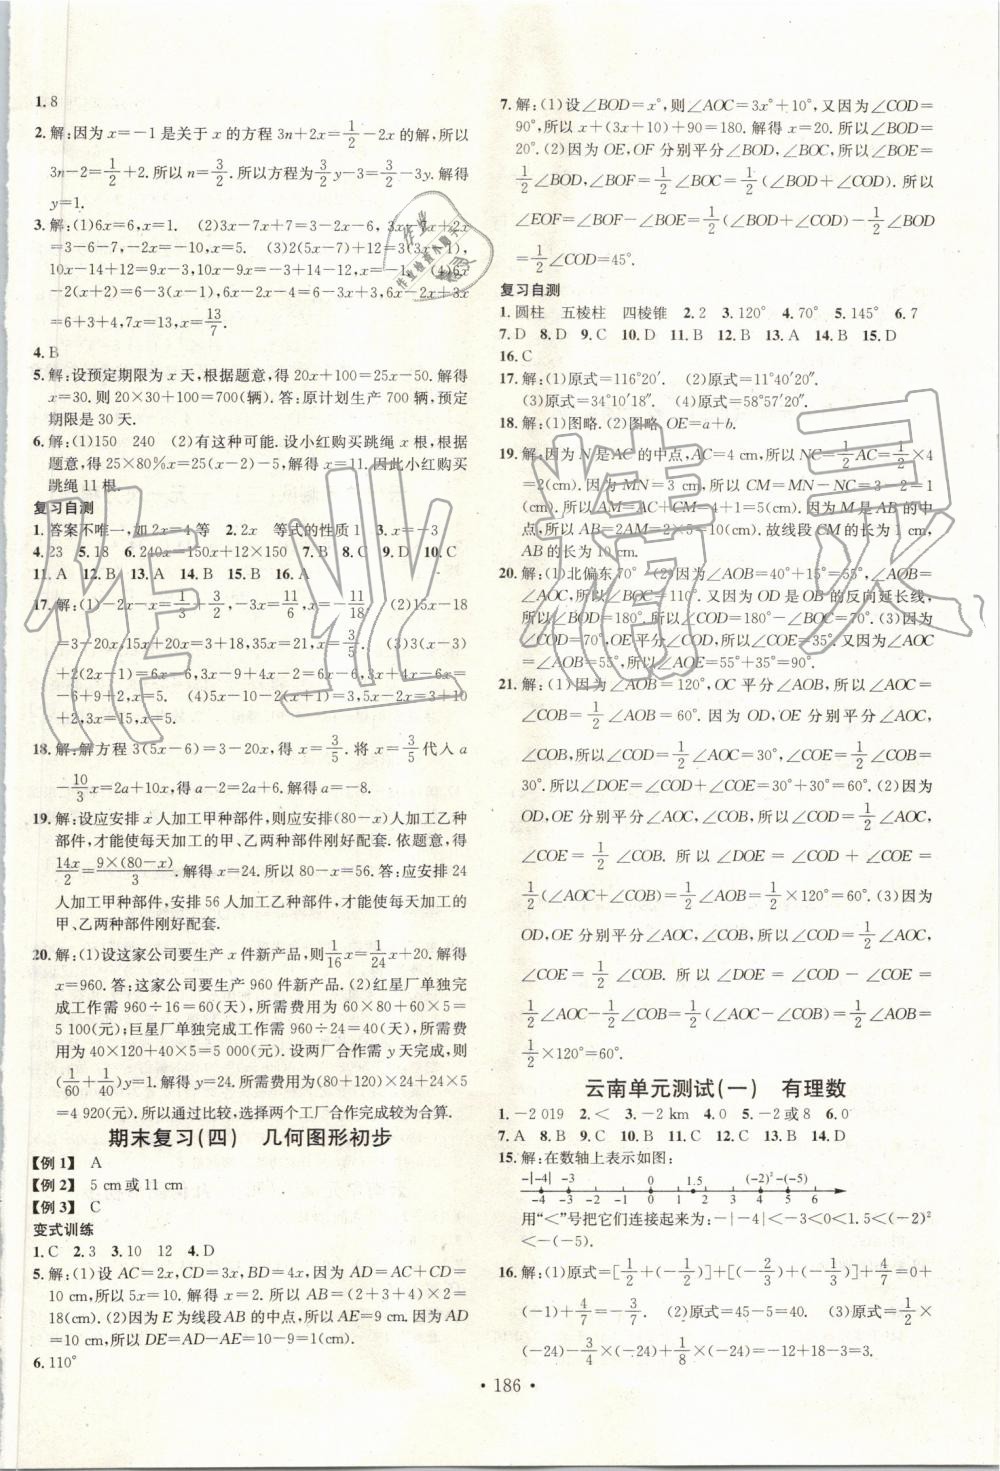 1. 8
2. 解:因为 x=-1 是关于 x 的方程 3n+2x=1/2-2x 的解,所以
3n-2=1/2+2.所以 n=3/2.所以方程为3/2y-3=3/2-3y.解得
y=1.
3. 解:(1)6x=6,x=1. (2)3x-7x+7=3-2x-6, 3x-7x+2x
=3-6-7,-2x=-10,x=5. (3)2(5x-7)+12=3(3x-1),
10x-14+12=9x-3,10x-9x=-3+14-12,x=-1. (4)6x
-2(x+2)=6-3(x-1),6x-2x-4=6-3x+3,6x-2x+3x
=6+3+4,7x=13,x=13/7.
4. B
5. 解:设预定期限为 x 天,根据题意,得 20x+100=25x-50.解得
x=30.则 20×30+100=700(辆).答:原计划生产 700 辆,预定
期限是 30 天.
6. 解:(1)150 240 (2)有这种可能.设小红购买跳绳 x 根,根据
题意,得 25×80%x=25(x-2)-5,解得 x=11.因此小红购买
跳绳 11 根.
复习自测
1. 答案不唯一,如 2x=4 等 2. 2x 等式的性质 1 3. x=-3
4. 23 5. 18 6. 240x=150x+12×150 7. B 8. C 9. D 10. C
11. A 12. B 13. A 14. B 15. B 16. A
17. 解:(1)-2x-x=1/3+3/2,-3x=11/6,x=-11/18. (2)15x-18
=3-20x,15x+20x=3+18,35x=21,x=3/5. (3)3(x-3)
+2(2x-1)=6x,3x-9+4x-2=6x,3x+4x-6x=
-6+9+2,x=5. (4)5x-10-2(x+1)=3,5x-2x=3+10
+2,3x=15,x=5.
18. 解:解方程 3(5x-6)=3-20x,得 x=3/5.将 x=3/5代入 a
-10/3x=2a+10x,得 a-2=2a+6.解得 a=-8.
19. 解:设应安排 x 人加工甲种部件,则应安排(80-x)人加工乙种
部件,才能使每天加工的甲、乙两种部件刚好配套.依题意,得
14x/2=9×(80-x)/3.解得 x=24.所以 80-x=56.答:应安排 24
人加工甲种部件,安排 56 人加工乙种部件,才能使每天加工的
甲、乙两种部件刚好配套.
20. 解:(1)设这家公司要生产 x 件新产品,则1/16x=1/24x+20.解得
x=960.答:这家公司要生产 960 件新产品.(2)红星厂单独完
成工作需 960÷16=60(天),所需费用为 60×80+60×5=
5 100(元);巨星厂单独完成工作需 960÷24=40(天),所需费
用为 40×120+40×5=5 000(元).设两厂合作需 y 天完成,则
(1/60+1/40)y=1.解得 y=24.所需费用为(80+120)×24+24×5
=4 920(元).所以通过比较,选择两个工厂合作完成较为合算.
期末复习(四) 几何图形初步
【例 1】 A
【例 2】 5 cm 或 11 cm
【例 3】 C
变式训练
1. C 2. 3 3. 10 12 4. D
5. 解:(1)设 AC=2x,CD=3x,BD=4x,因为 AD=AC+CD=
10 cm,所以 5x=10.解得 x=2.所以 AB=(2+3+4)×2=
18(cm).(2)因为 E 为线段 AB 的中点,所以 AE=9 cm.因为 AD
=10 cm,所以 DE=AD-AE=10-9=1(cm).
6. 110°
7. 解:(1)设∠BOD=x°,则∠AOC=3x°+10°,又因为∠COD=
90°,所以 x+(3x+10)+90=180.解得 x=20.所以∠BOD=
20°.(2)因为 OE,OF 分别平分∠BOD,∠BOC,所以∠BOE=
1/2∠BOD,∠BOF=1/2∠BOC=1/2(∠BOD+∠COD).所以
∠EOF=∠BOF-∠BOE=1/2(∠BOD+∠COD)-1/2∠BOD=
1/2∠COD=45°.
复习自测
1. 圆柱 五棱柱 四棱锥 2. 2 3. 120° 4. 70° 5. 145° 6. 7
7. D 8. D 9. C 10. D 11. B 12. B 13. A 14. B 15. D
16. C
17. 解:(1)原式=116°20′. (2)原式=11°40′20″.
(3)原式=34°10′18″. (4)原式=58°57′20″.
18. 解:(1)图略.(2)图略 OE=a+b.
19. 解:因为 N 是 AC 的中点,AC=4 cm,所以 NC=1/2AC=1/2×4
=2(cm).因为 MN=3 cm,所以 CM=MN-NC=3-2=1
(cm),所以 AM=AC+CM=4+1=5(cm).因为 M 是 AB 的中
点,所以 AB=2AM=2×5=10(cm).故线段 CM 的长为 1 cm,
AB 的长为 10 cm.
20. 解:(1)北偏东 70° (2)因为∠AOB=40°+15°=55°,∠AOB=
∠AOC,所以∠BOC=110°.又因为 OD 是 OB 的反向延长线,
所以∠BOD=180°.所以∠COD=180°-∠BOC=70°.(3)因为
∠COD=70°,OE 平分∠COD,所以∠COE=35°.又因为∠AOC
=∠AOB=55°,所以∠AOE=55°+35°=90°.
21. 解:(1)因为∠AOB=120°,OC 平分∠AOB,所以∠AOC=
∠COB=1/2∠AOB=60°.因为 OD,OE 分别平分∠AOC,
∠COB,所以∠COD=1/2∠AOC=30°,∠COE=1/2∠COB=
30°.所以∠DOE=∠COD+∠COE=30°+30°=60°.(2)因为
OD,OE 分别平分∠AOC,∠COB,所以∠COD=1/2∠AOC,
∠COE=1/2∠COB.所以∠DOE=∠COD+∠COE=
1/2(∠AOC+∠COB)=1/2∠AOB=1/2×120°=60°.(3)因为
OD,OE 分别平分∠AOC,∠COB,所以∠COD=1/2∠AOC,
∠COE=1/2∠COB.所以∠DOE=∠COD-∠COE=
1/2∠AOC-1/2∠COB=1/2(∠AOC-∠COB)=1/2∠AOB=
1/2×120°=60°.
云南单元测试(一) 有理数
1. -2 019 2. < 3. -2 km 4. 0 5. -2 或 8 6. 0
7. A 8. B 9. C 10. B 11. C 12. C 13. D 14. D
15. 解:在数轴上表示如图:
-|-4| -3 0 1.5 (-2)² -(-5)
-4 -3 -2 -1 0 1 2 3 4 5 6
用“<”号把它们连接起来为:-|-4|<-3<0<1.5<(-2)²
<-(-5).
16. 解:(1)原式=[1/2+(-1/2)]+[(-2/3)+(-1/3)]+4/7=0+
(-1)+4/7=-3/7. (2)原式=45-5=40. (3)原式=1/2×
(-24)-3/4×(-24)+1/8×(-24)=-12+18-3=3.
· 186 ·
作业精灵